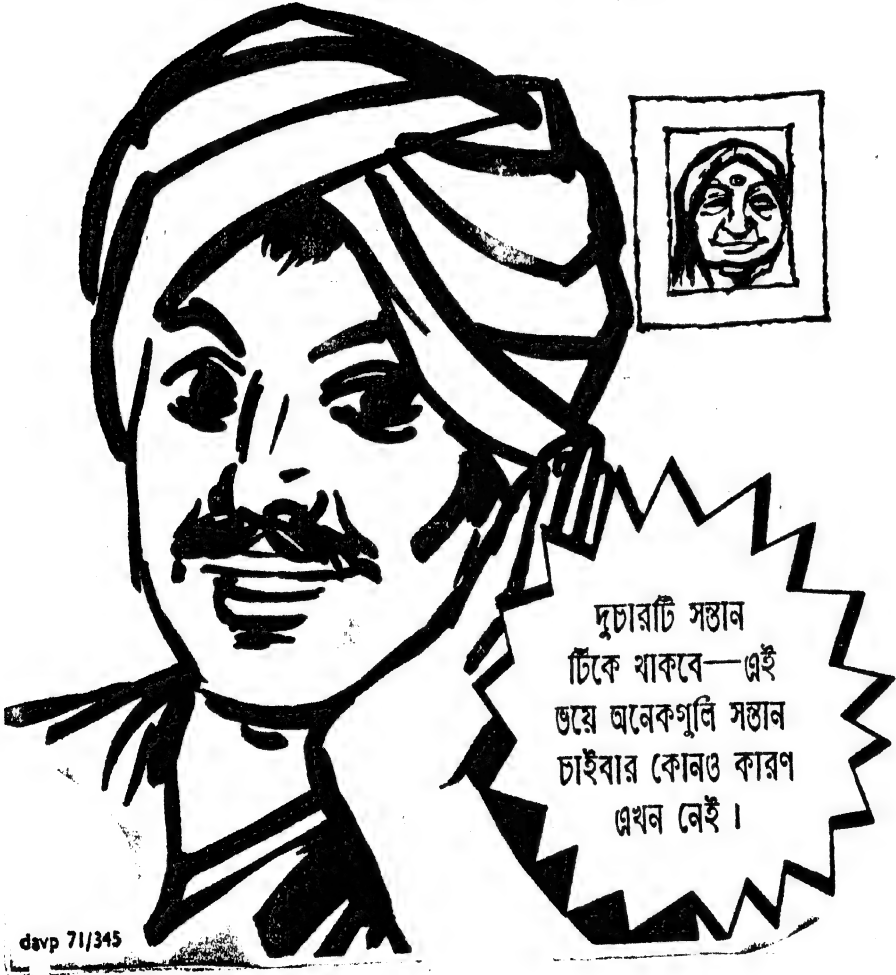 দুচারটি সন্তান
টিকে থাকবে—এই
ভয়ে অনেকগুলি সন্তান
চাইবার কোনও কারণ
এখন নেই।
davp 71/345